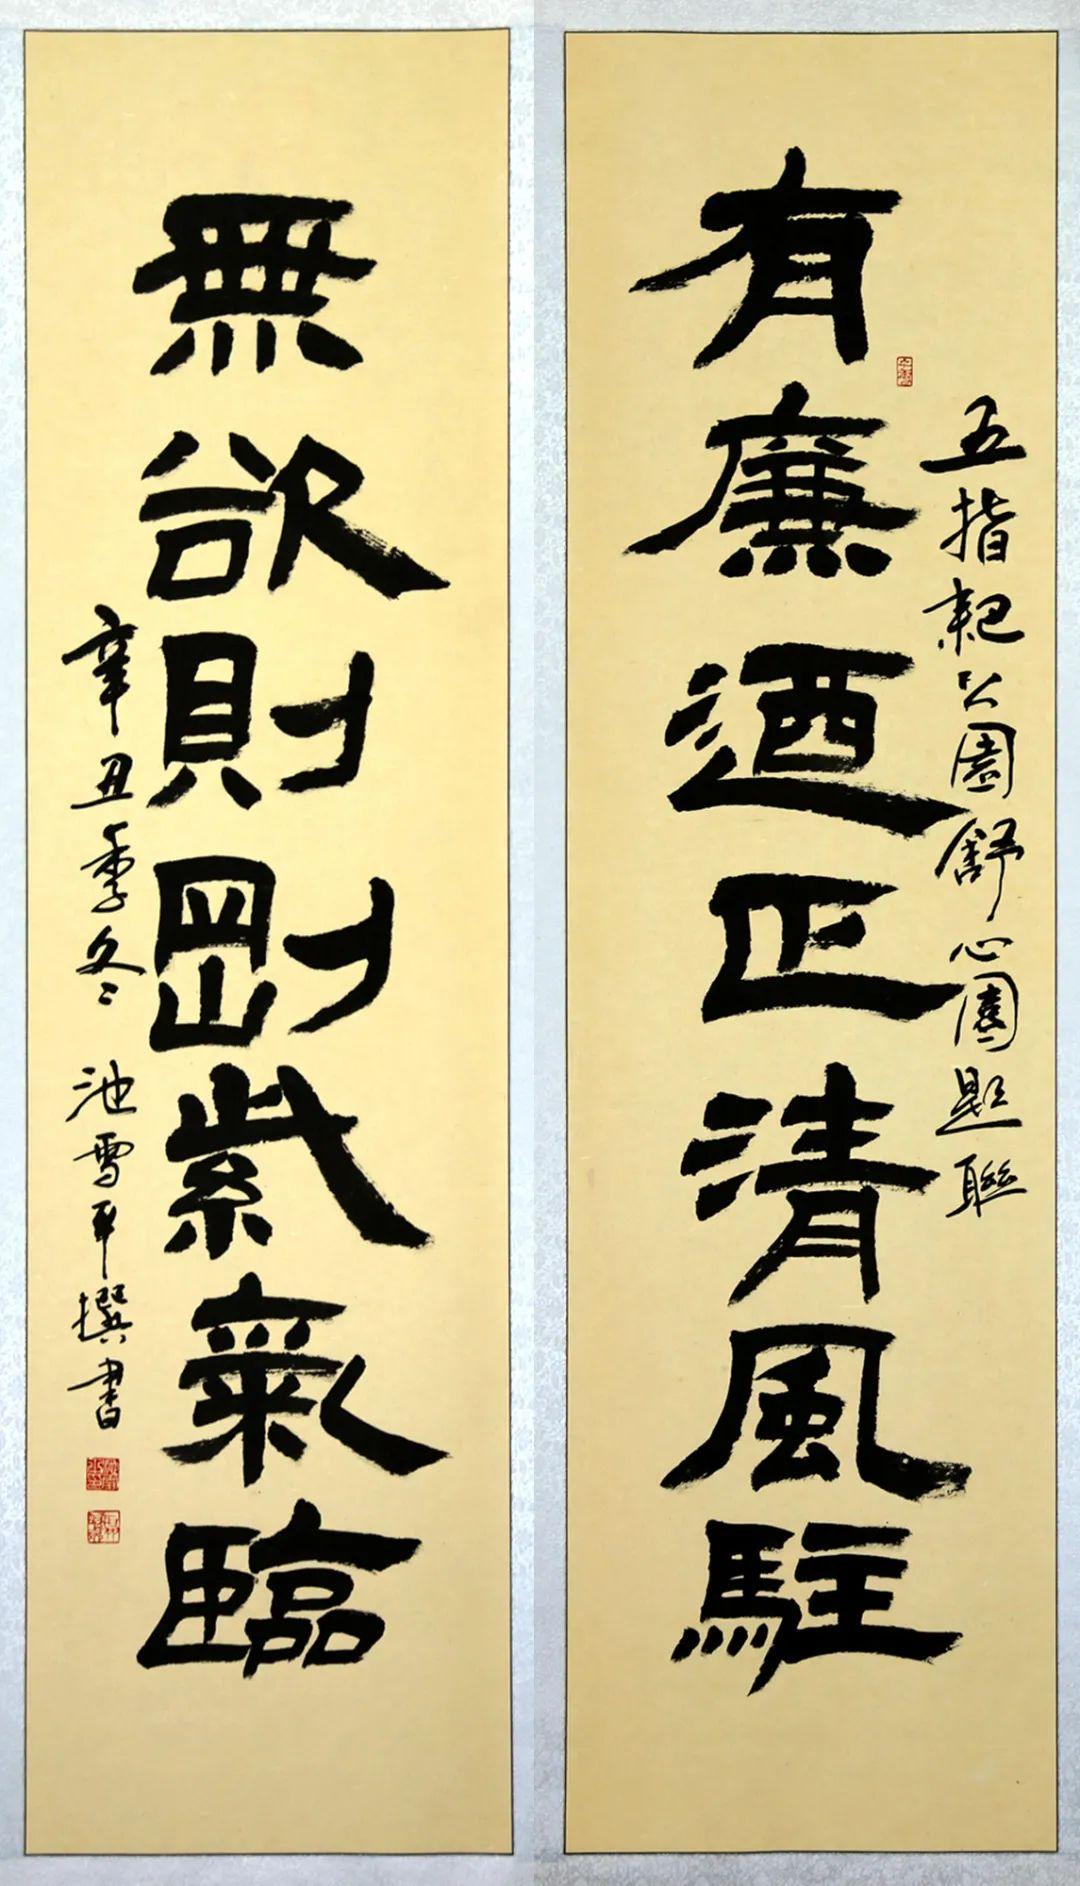 五指耙公園舒心園題聯
有廉迺正清風駐
無欲則剛紫氣臨
辛丑季冬 池雪平撰書